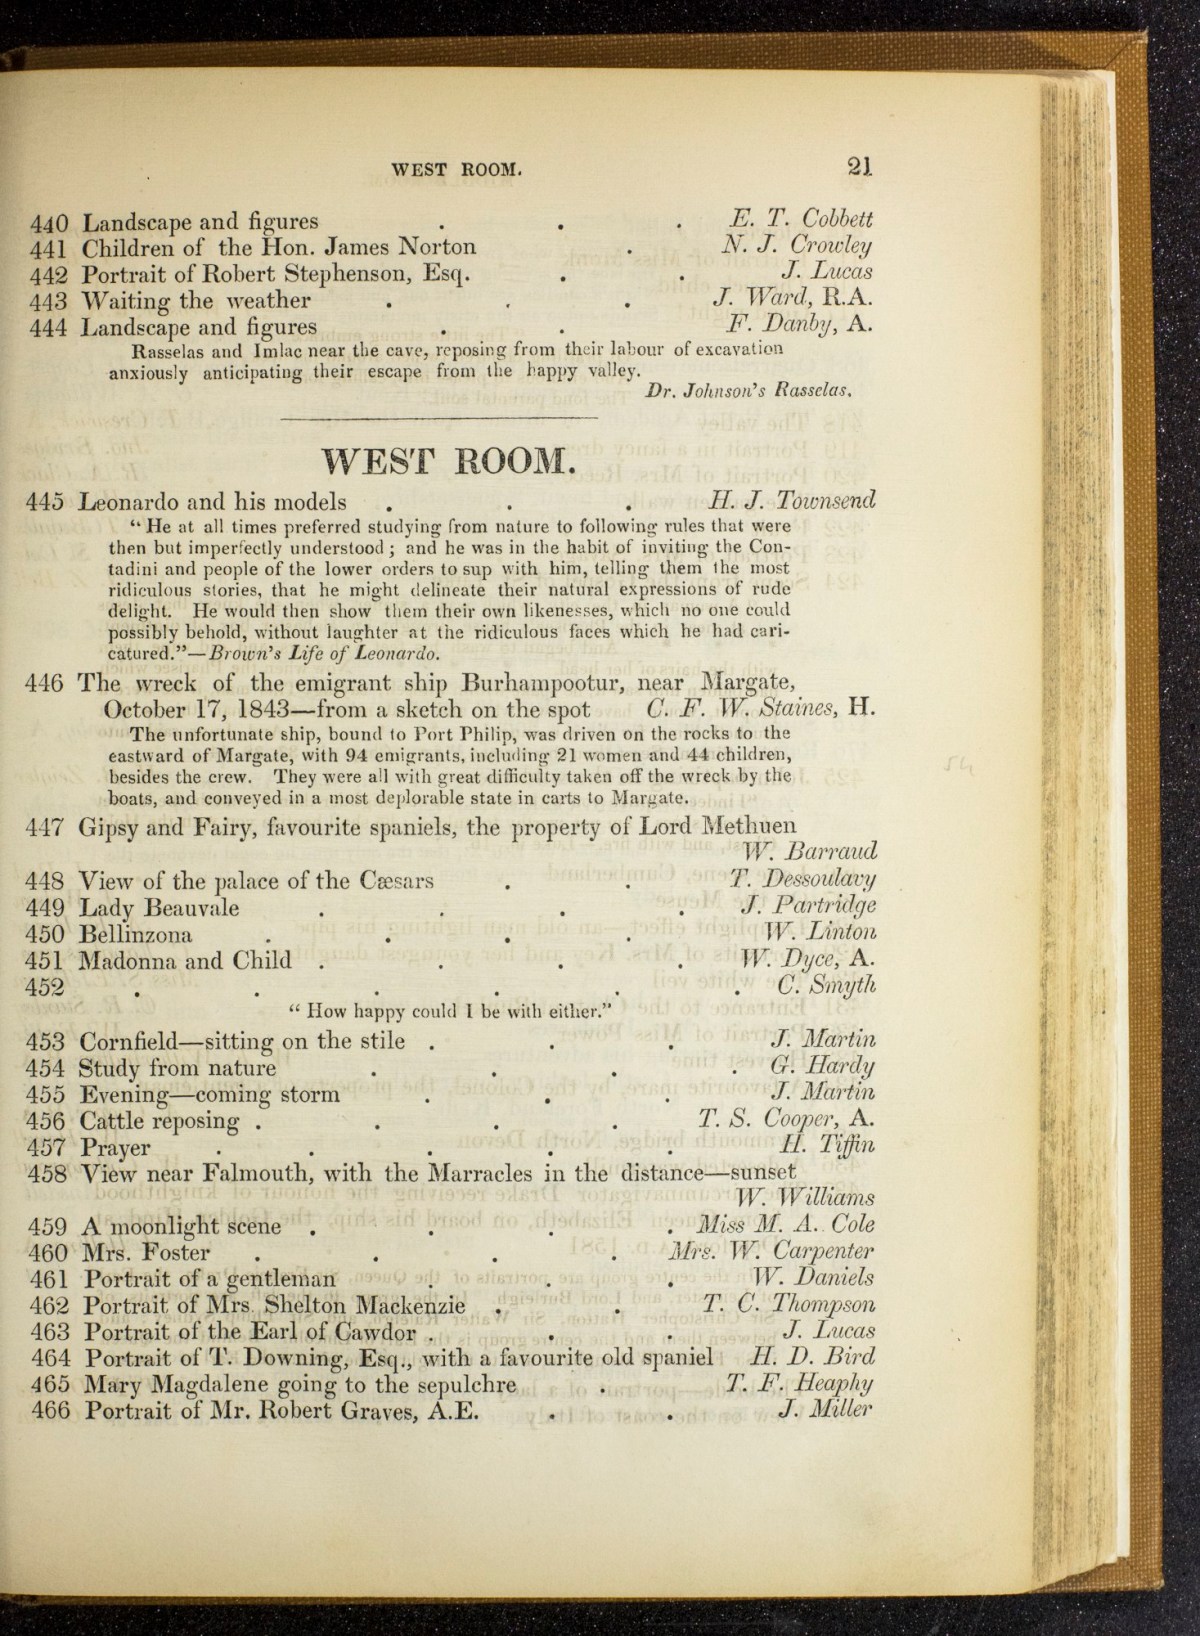 WEST ROOM. 21
440 Landscape and figures . . . E. T. Cobbett
441 Children of the Hon. James Norton . N. J. Crowley
442 Portrait of Robert Stephenson, Esq. . . J. Lucas
443 Waiting the weather . . . J. Ward, R.A.
444 Landscape and figures . . F. Danby, A.
Rasselas and Imlac near the cave, reposing from their labour of excavation
anxiously anticipating their escape from the happy valley.
Dr. Johnson's Rasselas.
WEST ROOM.
445 Leonardo and his models . . . H. J. Townsend
"He at all times preferred studying from nature to following rules that were
then but imperfectly understood; and he was in the habit of inviting the Con-
tadini and people of the lower orders to sup with him, telling them the most
ridiculous stories, that he might delineate their natural expressions of rude
delight. He would then show them their own likenesses, which no one could
possibly behold, without laughter at the ridiculous faces which he had cari-
catured."—Brown's Life of Leonardo.
446 The wreck of the emigrant ship Burhampootur, near Margate,
October 17, 1843—from a sketch on the spot C. F. W. Staines, H.
The unfortunate ship, bound to Port Philip, was driven on the rocks to the
eastward of Margate, with 94 emigrants, including 21 women and 44 children,
besides the crew. They were all with great difficulty taken off the wreck by the
boats, and conveyed in a most deplorable state in carts to Margate.
447 Gipsy and Fairy, favourite spaniels, the property of Lord Methuen
W. Barraud
448 View of the palace of the Cæsars . . T. Dessoulavy
449 Lady Beauvale . . . . J. Partridge
450 Bellinzona . . . . W. Linton
451 Madonna and Child . . . . W. Dyce, A.
452 . . . . . . C. Smyth
"How happy could I be with either."
453 Cornfield—sitting on the stile . . . J. Martin
454 Study from nature . . . . G. Hardy
455 Evening—coming storm . . . J. Martin
456 Cattle reposing . . . . T. S. Cooper, A.
457 Prayer . . . . . H. Tiffin
458 View near Falmouth, with the Marracles in the distance—sunset
W. Williams
459 A moonlight scene . . . . Miss M. A. Cole
460 Mrs. Foster . . . . Mrs. W. Carpenter
461 Portrait of a gentleman . . . W. Daniels
462 Portrait of Mrs. Shelton Mackenzie . . T. C. Thompson
463 Portrait of the Earl of Cawdor . . . J. Lucas
464 Portrait of T. Downing, Esq., with a favourite old spaniel H. D. Bird
465 Mary Magdalene going to the sepulchre . T. F. Heaphy
466 Portrait of Mr. Robert Graves, A.E. . . J. Miller